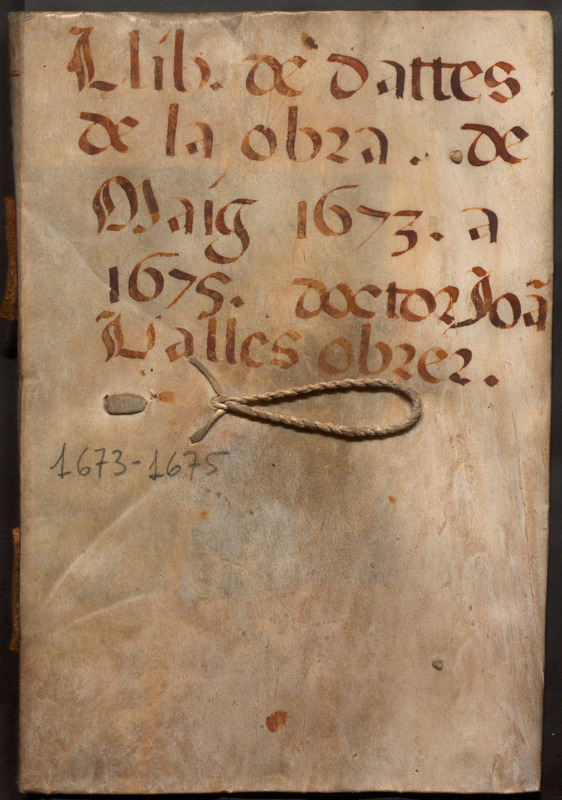 Llib. de dattes
de la obra . de
Maig 1673. a
1675. doctor Joã
Valles obrer.
1673-1675